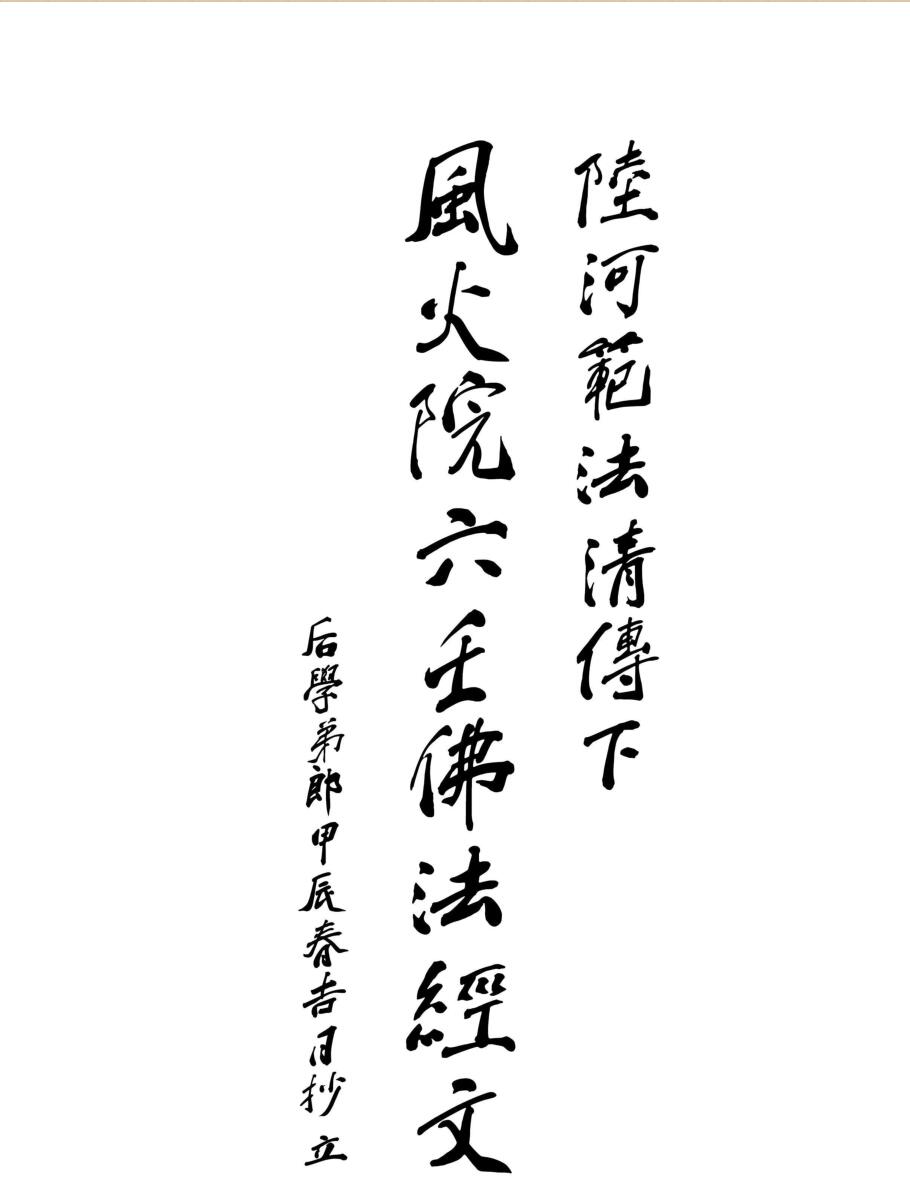 陸河範法清傳下
風火院六壬佛法經文
后學弟郎甲辰春吉日抄立